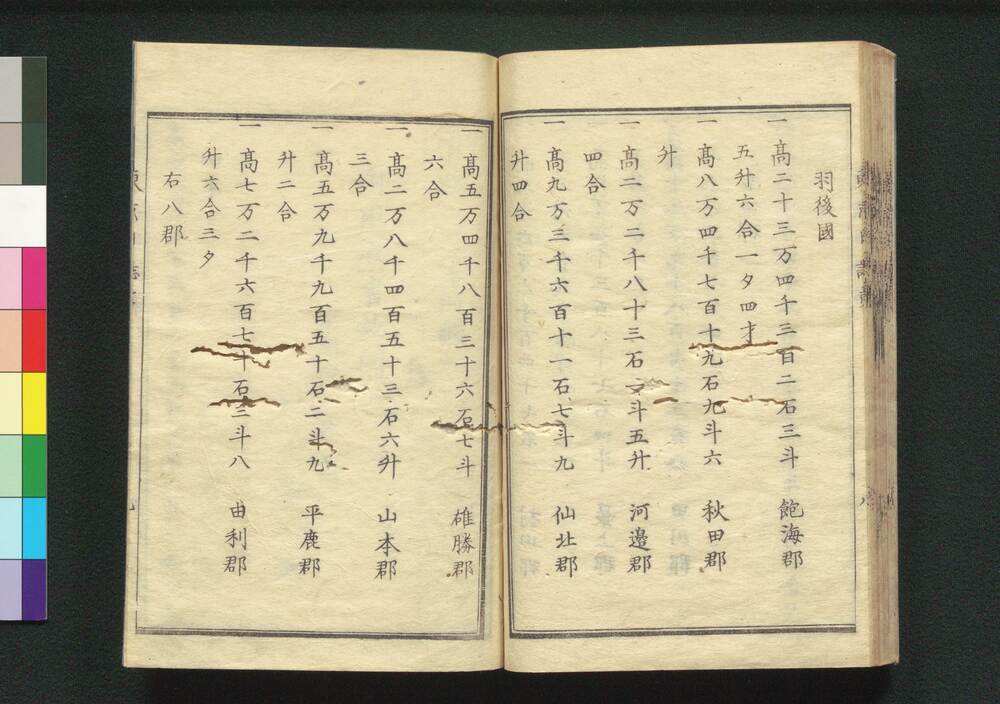 羽後國
一 髙二十三万四千三百二石三斗 飽海郡
五升六合一夕四才
一 髙八万四千七百十九石九斗六 秋田郡
升
一 髙二万二千八十三石 斗五升 河邉郡
四合
一 髙九万三千六百十一石七斗九 仙北郡
升四合
一 髙五万四千八百三十六石七斗 雄勝郡
六合
一 髙二万八千四百五十三石六升 山本郡
三合
一 髙五万九千九百五十石二斗九 平鹿郡
升二合
一 髙七万二千六百七十石三斗八 由利郡
升六合三夕
右八郡